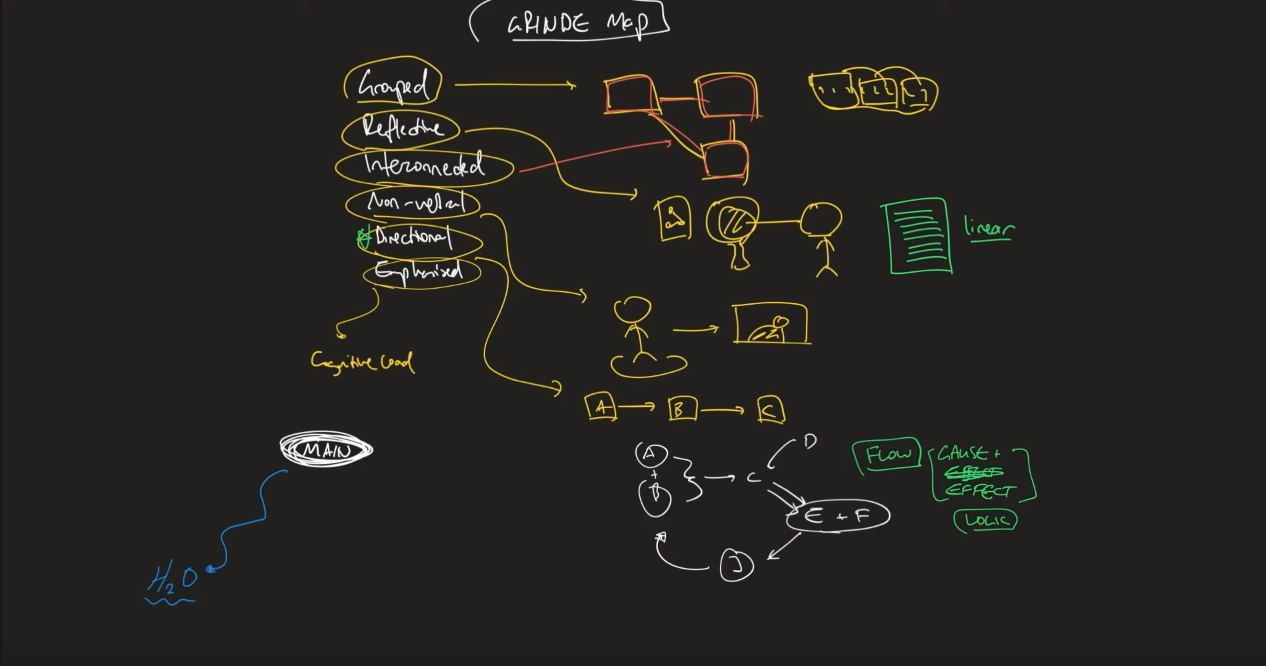 GRINDE MAP
Grouped
Reflective
Interconnected
Non-verbal
Directional
Emphasised
Cognitive load
linear
A
B
C
MAIN
A
+
B
C
D
E + F
J
FLOW
CAUSE +
EFFECT
LOGIC
H₂O